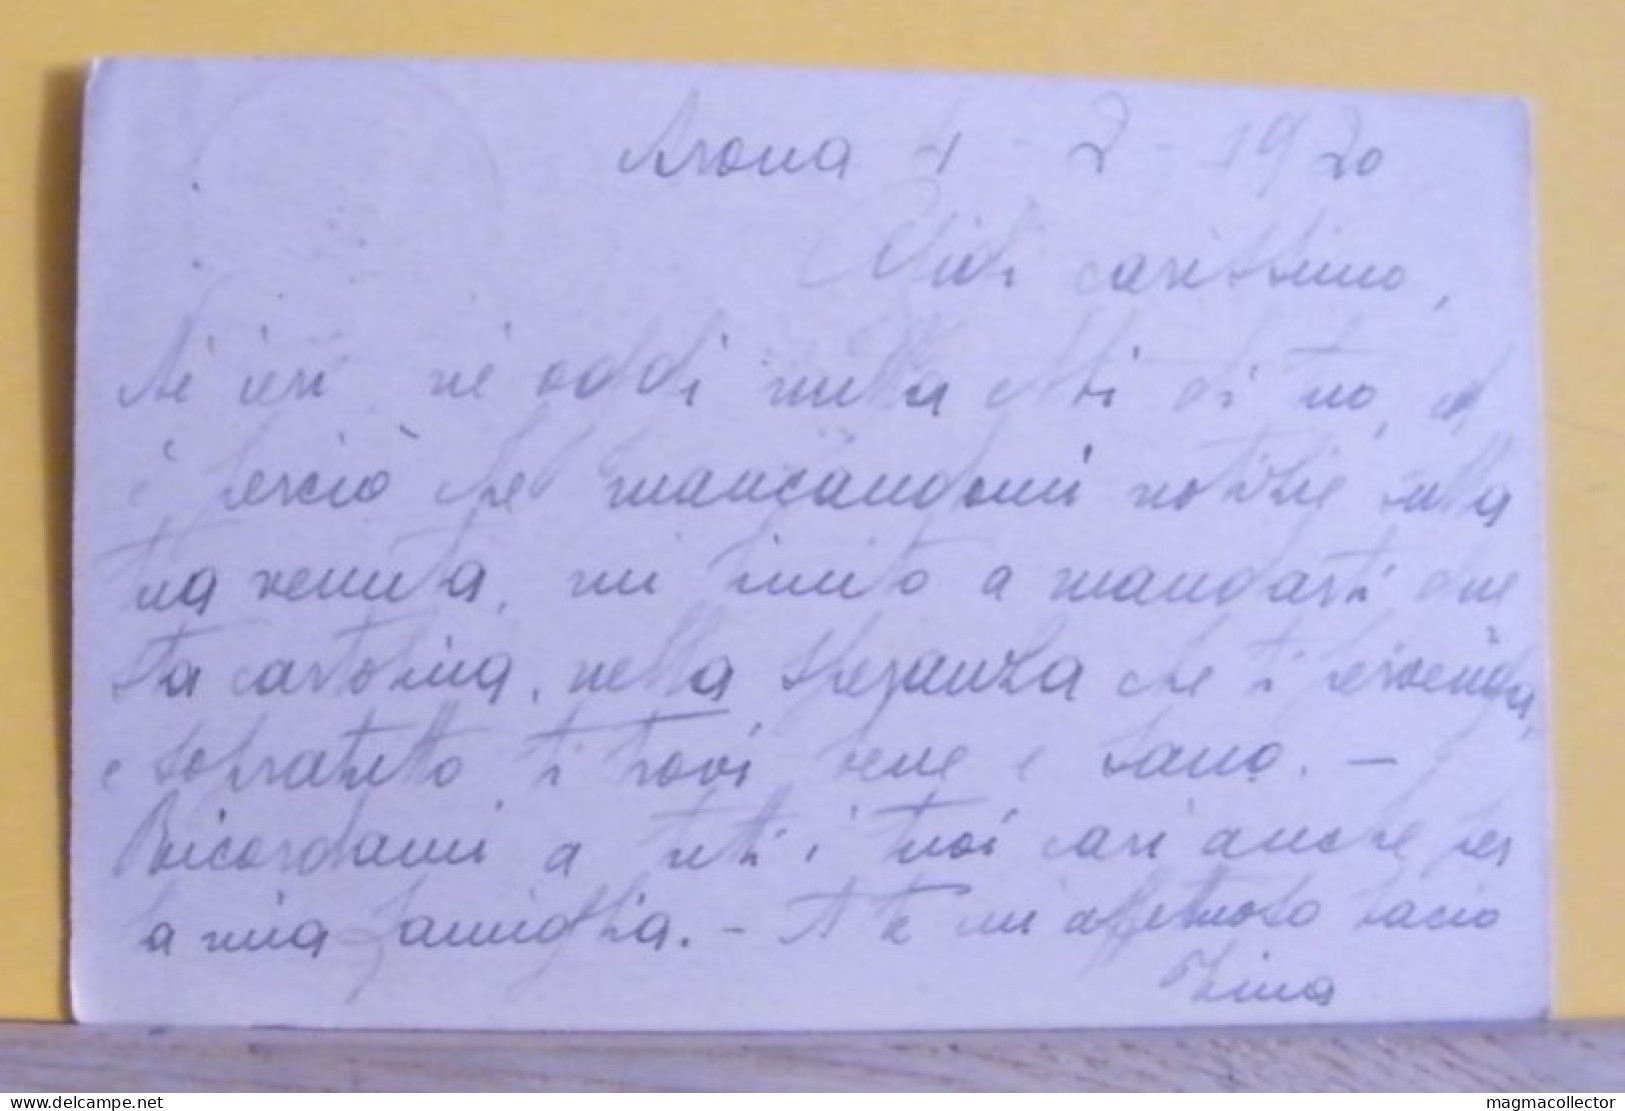 Arona 4-2-1920
Didi carissimo,
Nè ieri nè oddi nulla ebbi di te, ed
è perciò che mancandomi notizie sulla
tua venuta, mi limito a mandarti que
sta cartolina, nella speranza che ti pervenga,
e sopratutto ti trovi bene e sano. –
Ricordami a tutti i tuoi cari anche per
la mia famiglia. – A te un affettuoso bacio
Zina
www.delcampe.net
magmacollector